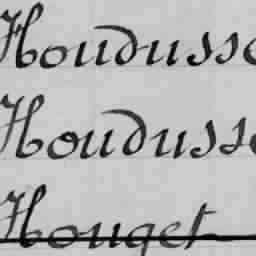 Houdusse
Houdusse
Houget